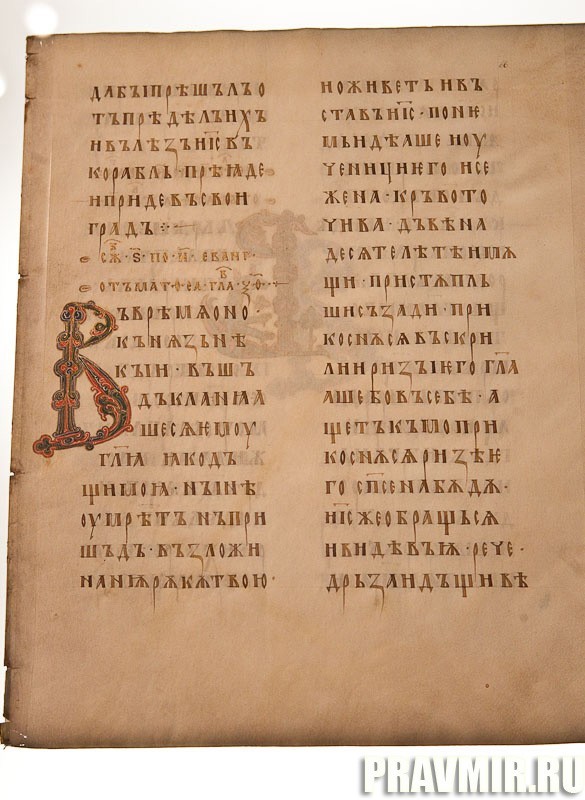 дабꙑпрѣшьлъо
тъпрѣдѣлъихъ
ивълѣзъиі҃свъ
корабль·прѣиде
ипридевъсвои
градъ·
сѫ҃·ѕ҃·по·н҃·еванг·
отъматѳеа·гла·
Въврѣмѧоно·
кънѧзьнѣ
кꙑи·въшь
дъкланꙗа
шесѧѥмоу
гл҃ꙗꙗкодъ
щимоꙗ·нꙑнѣ
оумрѣтънъпри
шьдъ·възложи
нанѭрѫкѫтвоѭ·
ноживетьивъ
ставъиі҃с·понѥ
мьидѣашеиоу
ченициѥгоисе
жена·кръвото
чива·дъвѣна
десѧтелѣтеимѫ
щи·пристѫпль
шисъзади·при
коснѫсѧвъскри
лииризꙑѥгогл҃а
ашебовъсебѣ·а
щетъкъмопри
коснѫсѧризѣѥ
го·сп҃сенабѫдѫ·
і҃сжеобращьсѧ
ивидѣвъıѭ·рече·
дрьзаидъщивѣ
PRAVMIR.RU